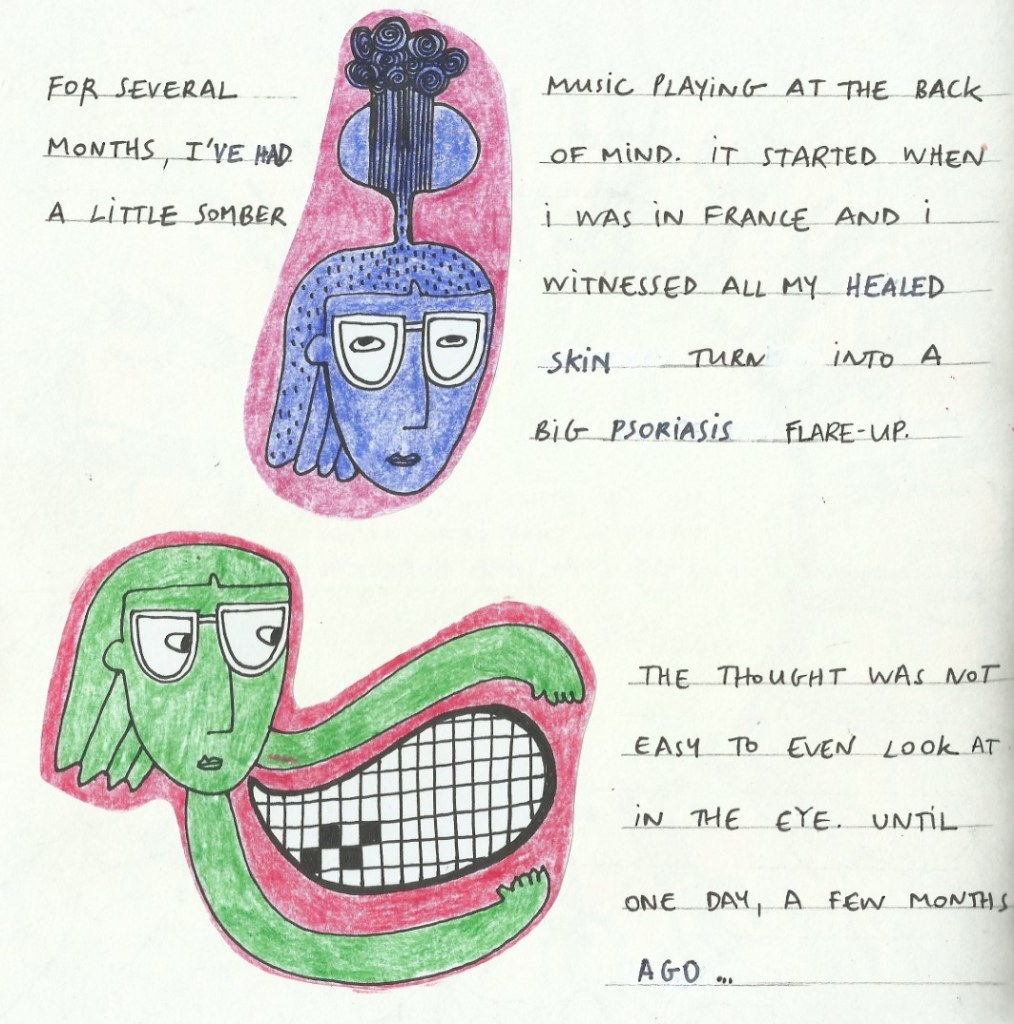 FOR SEVERAL
MONTHS, I'VE HAD
A LITTLE SOMBER
MUSIC PLAYING AT THE BACK
OF MIND. IT STARTED WHEN
I WAS IN FRANCE AND I
WITNESSED ALL MY HEALED
SKIN TURN INTO A
BIG PSORIASIS FLARE-UP.
THE THOUGHT WAS NOT
EASY TO EVEN LOOK AT
IN THE EYE. UNTIL
ONE DAY, A FEW MONTHS
AGO ...